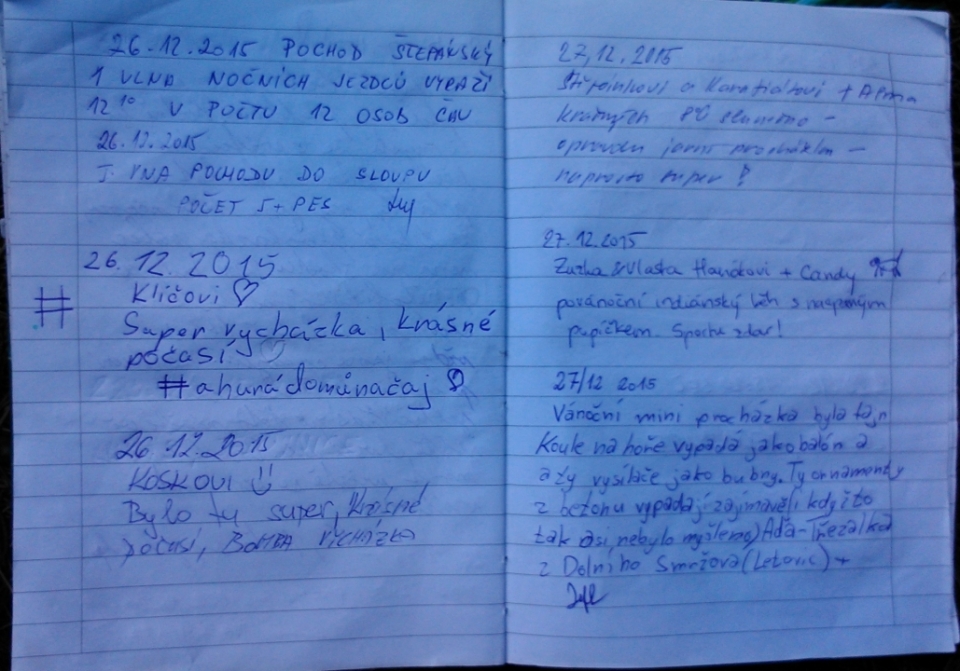 26.12.2015 POCHOD ŠTEPÁNSKÝ
1 VLNA NOČNÍCH JEZDCŮ VYRAŽÍ
12¹⁰ V POČTU 12 OSOB
26.12.2015
I. VNA POCHODU DO SLOUPU
POČET 5+PES
26.12.2015
Klíčovi ♡
#
Super vycházka, krásné
počasí ♡
#ahurádomůnačaj
26.12.2015
KOSKOVI
Bylo tu super, krásné
počasí, BOMBA VYCHÁZKA
27.12.2015
a + Alma
PČ
naprosto super!
27.12.2015
Zuzka & Vlasta Hanákovi + Candy
povánoční indiánský běh s
pupíčkem. Sportu zdar!
27/12 2015
Vánoční mini procházka byla fajn
Koule na hoře vypadá jako balón a
a ty vysílače jako bubny. Ty ornamenty
z betonu vypadají zajímavě(i když to
tak asi nebylo myšleno) Áďa-Třezalka
z Dolního Smržova (Letovic) +